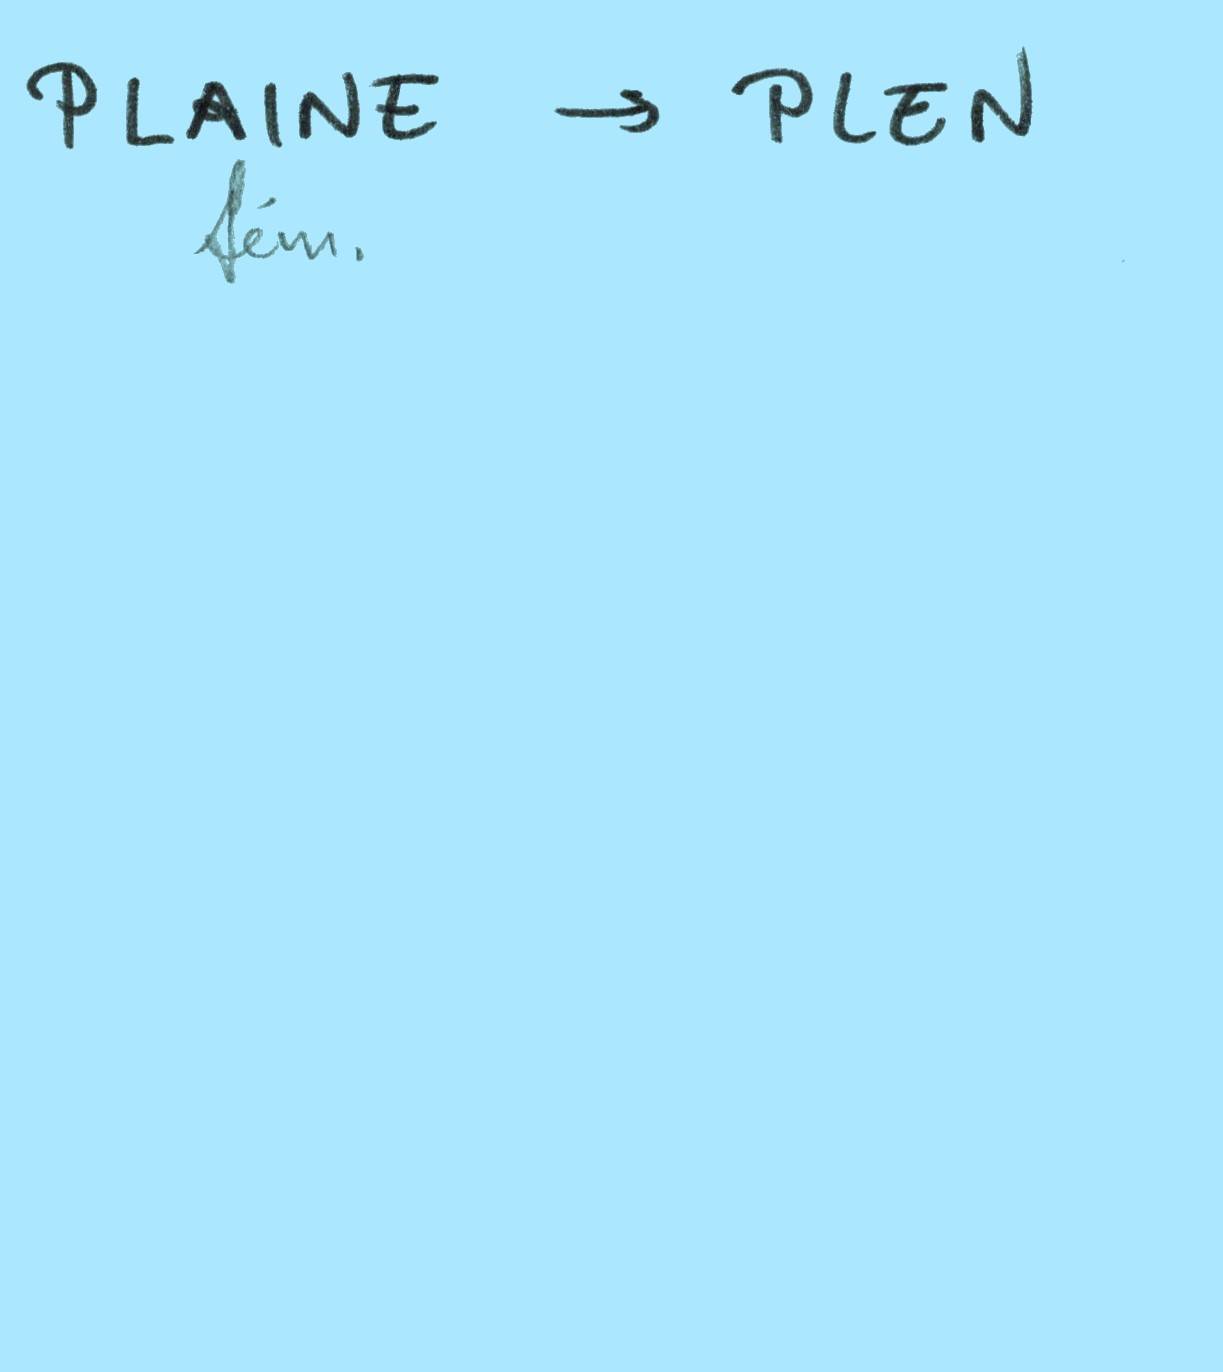 PLAINE → PLEN
fém.